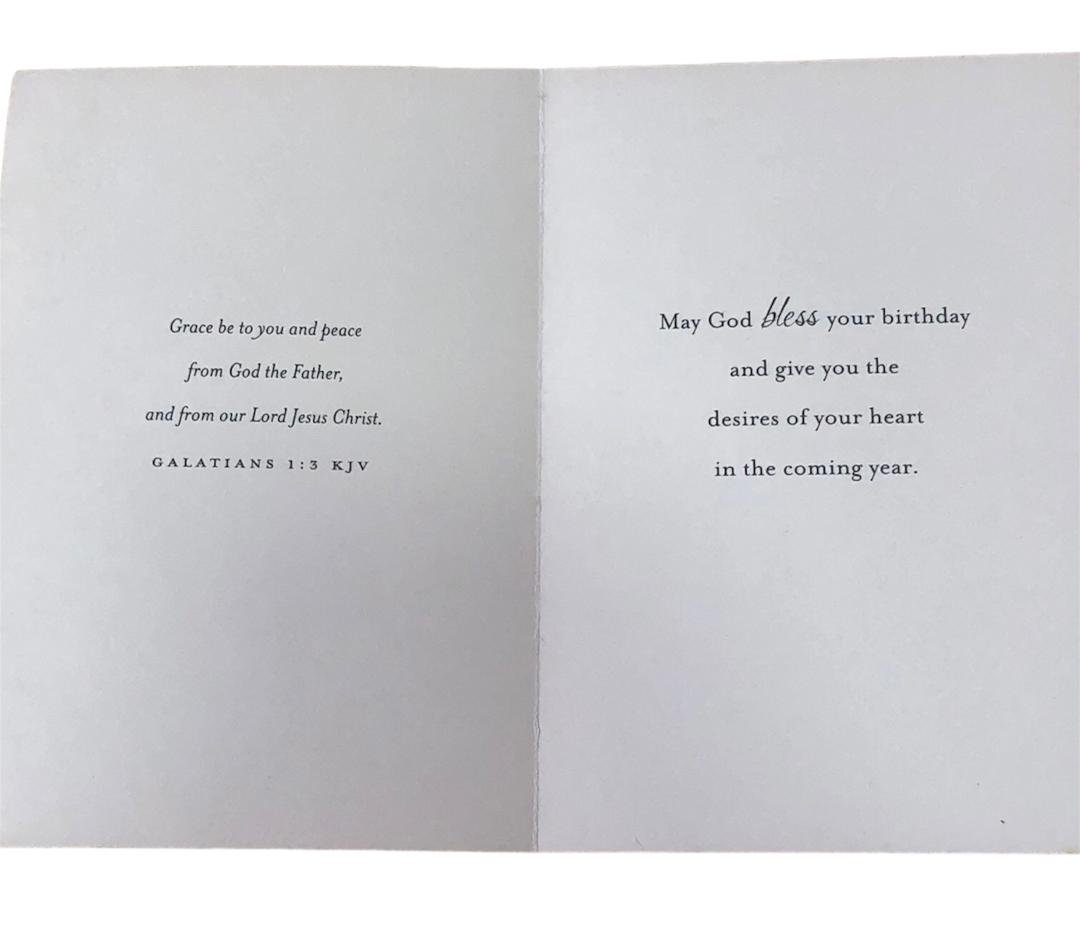 Grace be to you and peace
from God the Father,
and from our Lord Jesus Christ.
GALATIANS 1:3 KJV
May God bless your birthday
and give you the
desires of your heart
in the coming year.